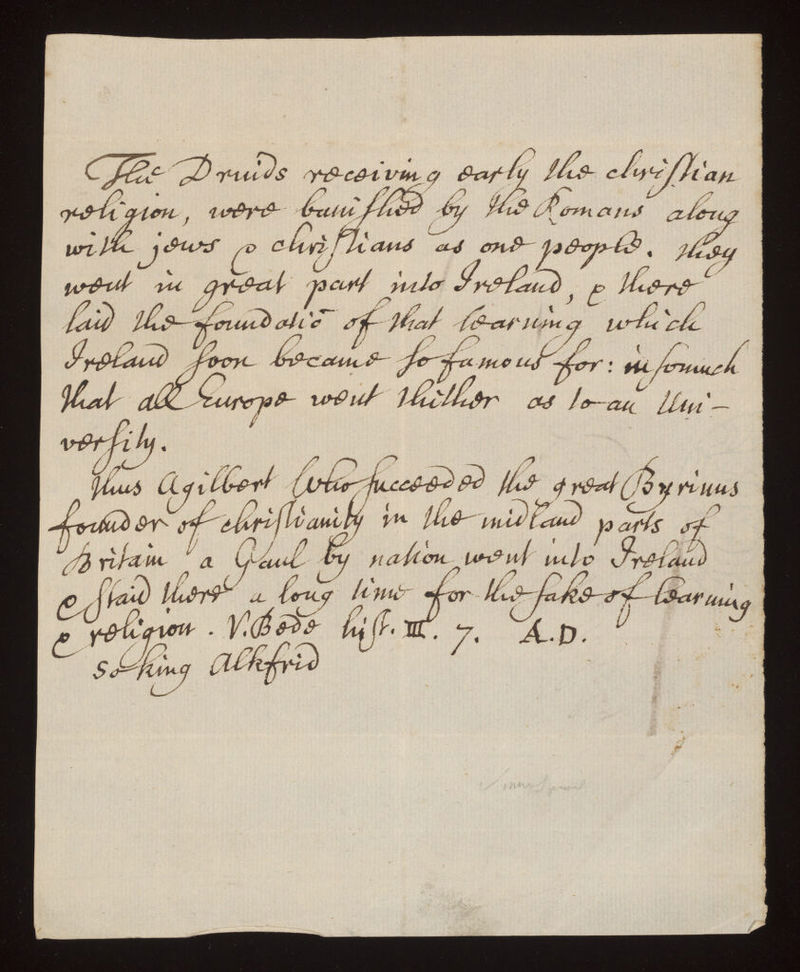 The Druids receiving early the christian
religion, were banished by the Romans along
with jews & christians as one people. they
went in great part into Ireland, & there
laid the foundatiō of that learning which
Ireland soon became so famous for: insomuch
that all Europe went thither as to an Uni-
versity.
thus Agilbert who succeeded the great Byrinus
founder of christianity in the midland parts of
Britain a Gaul by nation went into Ireland
& staid there a long time for the sake of learning
& religion. V. Bede hist. III. 7. A.D.
so king Alkfrid